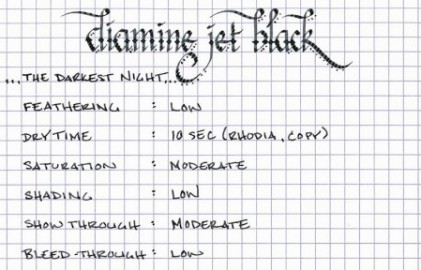 diamine jet black
...THE DARKEST NIGHT...
FEATHERING : LOW
DRYTIME : 10 SEC (RHODIA, COPY)
SATURATION : MODERATE
SHADING : LOW
SHOW THROUGH : MODERATE
BLEED-THROUGH : LOW